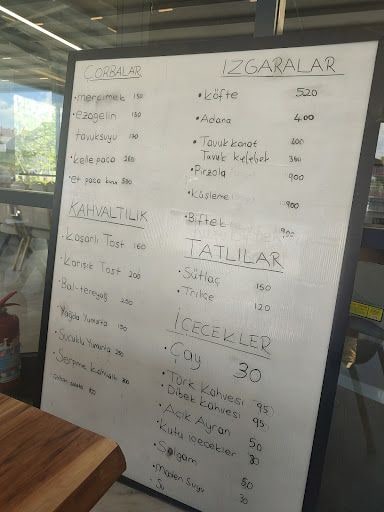 ÇORBALAR
• mercimek 150
• ezogelin 150
tavuksuyu 170
• kelle paça 260
• et paça 300
KAHVALTILIK
• Kaşarlı Tost 160
• Karışık Tost 200
• Bal-tereyağ 250
• Yağda Yumurta 150
• Sucuklu Yumurta 250
• Serpme kahvaltı
IZGARALAR
• Köfte 520
• Adana 400
• Tavuk kanat 400
Tavuk kelebek 360
• Pirzola 900
• Küşleme 900
• Biftek 900
TATLILAR
• Sütlaç 150
• Trileçe 120
İÇECEKLER
• Çay 30
• Türk Kahvesi 95
• Dibek Kahvesi 95
• Açık Ayran 50
• Kutu içecekler
• Şalgam 50
• Maden Suyu 30
• Su